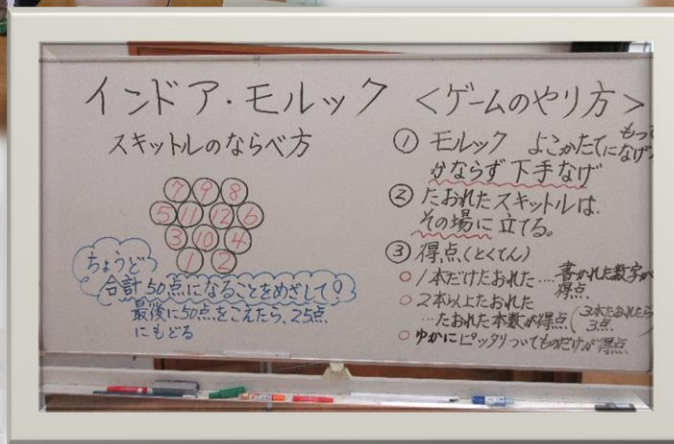 インドア・モルック
スキットルのならべ方
7 9 8
5 11 12 6
3 10 4
1 2
ちょうど
合計50点になることをめざして!
最後に50点をこえたら、25点
にもどる
<ゲームのやり方>
① モルック よこかたてにもって
なげ
かならず下手なげ
② たおれたスキットルは、
その場に立てる。
③ 得点(とくてん)
○ 1本だけたおれた…書かれた数字が
得点
○ 2本以上たおれた
…たおれた本数が得点(3本たおれたら
3点
○ ゆかにピッタリついてものだけが得点